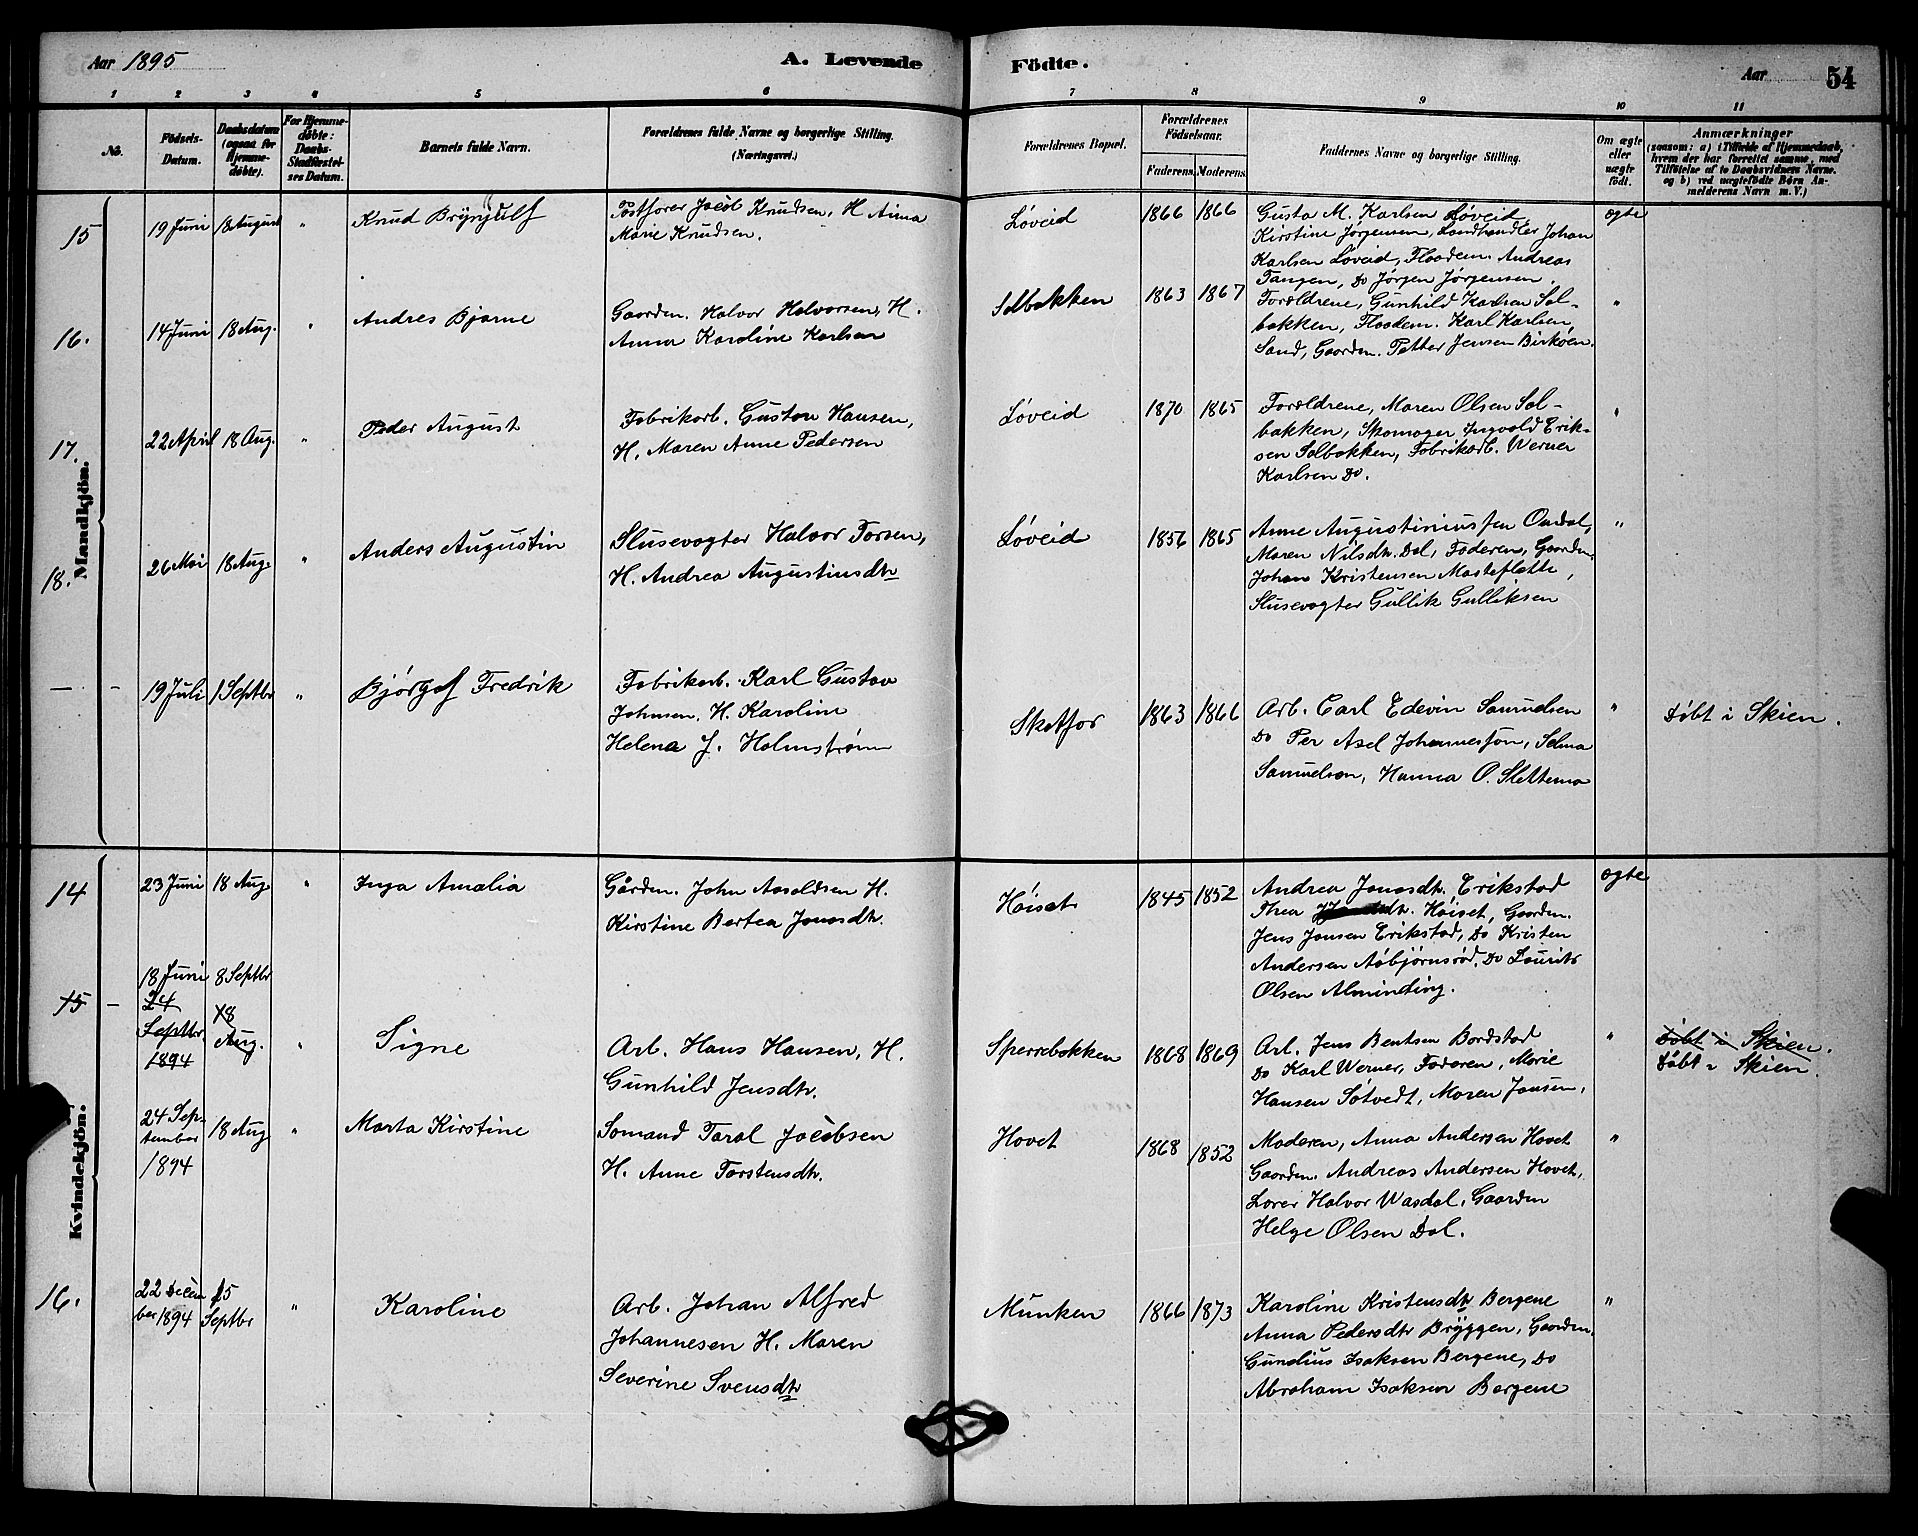 Aar 1895
A. Levende
Födte.
Aar
54
1 2 3 4 5 6 7 8 9 10 11
No.
Födsels-Datum.
Daabsdatum (ogsaa for Hjemme-døbte).
For Hjemme-døbte: Daabs-Stadfæstel-ses Datum.
Barnets fulde Navn.
Forældrenes fulde Navne og borgerlige Stilling. (Næringsvei.)
Forældrenes Bopæl.
Forældrenes Fødselsaar.
Faderens. Moderens.
Faddernes Navne og borgerlige Stilling.
Om ægte eller uægte født.
Anmærkninger
(saasom: a) i Tilfælde af Hjemmedaab, hvem der har forrettet samme, med Tilføielse af to Daabsvidners Navne. og b) ved uægtefødte Børn An-melderens Navn m. V.)
Mandkjön.
15 19 Juni 18 August " Knud Brynjulf
Postfører Jacob Knudsen, H
Marie Knudsen.
Løveid 1866 1866
Gusta M. Karlsen Løveid,
Kirstine Jørgensen, Landhandler Johan
Karlsen Løveid, Floadem. Andreas
Tangen, Do Jørgen Jørgensen.
ægte
16. 14 Juni 18 Aug. " Andres Bjarne
Gaardm. Halvor Halvorsen, H.
Anna Karoline Karlsen
Solbakken 1863 1867
Forældrene, Gunhild Karlsen Sol-
bakken, Floadem. Karl Karlsen
Sand, Gaardm. Petter Jensen Birkøen.
"
17. 22 April 18 Aug. " Peder August
Fabrikarb. Gustav Hansen,
H. Maren Anne Pedersen
Løveid 1870 1865
Forældrene, Maren Olsen Sol-
bakken, Skomager Ingvald Erik-
sen Solbakken, Fabrikarb. Werner
Karlsen Do.
"
18. 26 Mai 18 Aug. " Anders Augustin
Slusevogter Halvor Torsen,
H. Andrea Augustinusdtr
Løveid 1856 1865
Anne Augustiniussen Omdal,
Maren Nilsdtr. Dal, Faderen, Gaardm.
Johan Kristensen Masteflette,
Slusevogter Gullik Gulliksen
"
— - 19 Juli 1 Septbr " Bjørgolf Fredrik
Fabrikarb. Karl Gustav
Johnsen, H. Karoline
Helena J. Holmstrøm
Skotfos 1863 1866
Arb. Carl Edevin Samuelsen
Do Per Axel Johannesson, Selma
Samuelson, Hanna O. Slettemo
" Døbt i Skien.
Kvindekjön.
14 23 Juni 18 Aug " Inga Amalia
Gårdm. John Aasoldsen H.
Kirstine Bertea Jonasdtr.
Høiset 1845 1852
Andrea Jonasdtr. Erikstad
Thea Høiset, Gaardm.
Jens Jonsen Erikstad, Do Kristen
Andersen Aabjørnsrød, Do Lourits
Olsen Alminding.
ægte
15 - 18 Juni 8 Septbr
24 Septbr. 1894 18 Aug. " Signe
Arb. Hans Hansen, H.
Gunhild Jensdtr.
Sperrebakken 1868 1869
Arb. Jens Bentsen Bordstad
Do Karl Werner, Faderen, Marie
Hansen Søtvedt, Maren Jonsen,
" Døbt i Skien.
Døbt i Skien.
24 Sep-
tember
1894 18 Aug " Marta Kirstine
Sømand Tarol Jacobsen
H. Anne Torstensdtr.
Hovet 1868 1852
Moderen, Anna Andersen Hovet
Gaardm. Andreas Andersen Hovet,
Lærer Halvor Wasdal, Gaardm
Helge Olsen Dal.
"
16. 22 Decem
ber 1894 15 Septbr " Karoline
Arb. Johan Alfred
Johannesen H. Maren
Severine Svensdtr
Munken 1866 1873
Karoline Kristensdtr Bergene
Anna Pedersdtr Bryggen, Gaardm.
Gundius Isaksen Bergene, Do
Abraham Isaksen Bergene
"